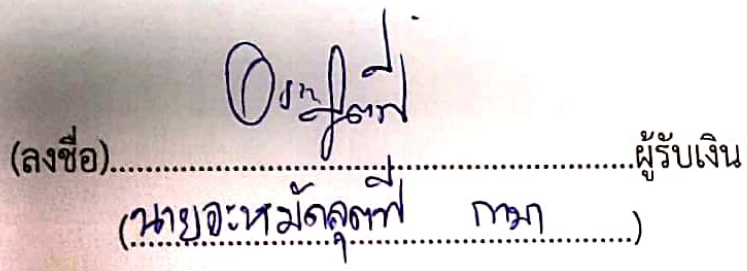 (ลงชื่อ)....................................................ผู้รับเงิน
(นายอะหมัดลุตฟี กามา)